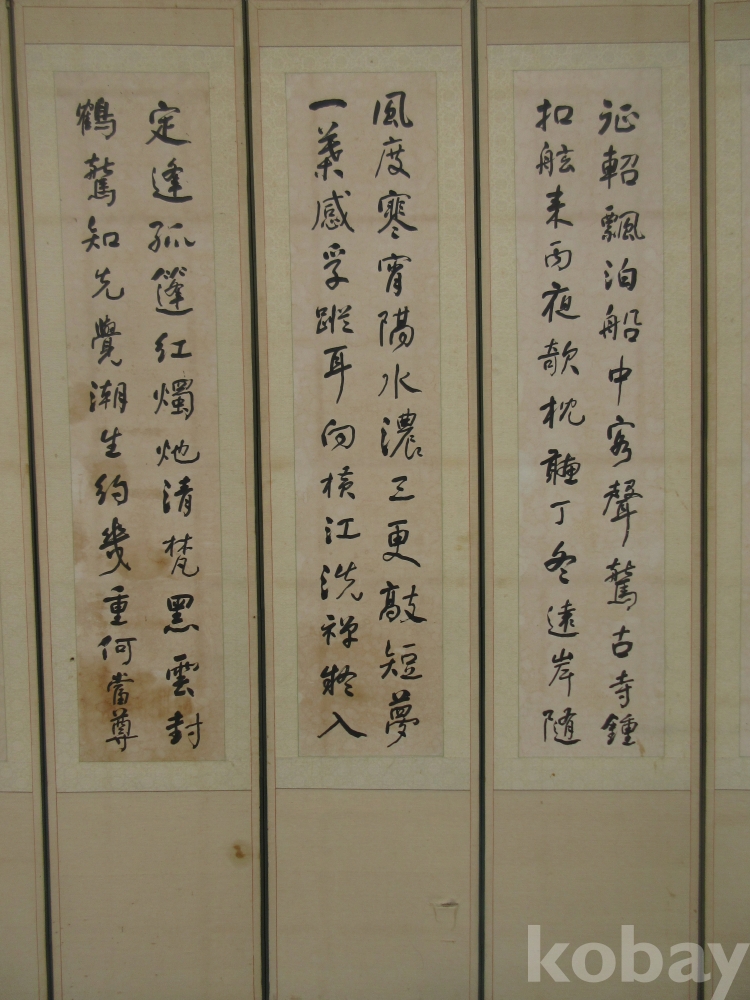 征軺飄泊船中客聲驚古寺鍾
扣舷來雨夜欹枕聽丁冬遠岸隨
風度寒宵隔水濃三更敲短夢
一葉感孚蹤耳向橫江洗禪終入
定逢孤篷紅燭灺清梵黑雲封
鶴驚知先覺潮生約幾重何當尊
kobay